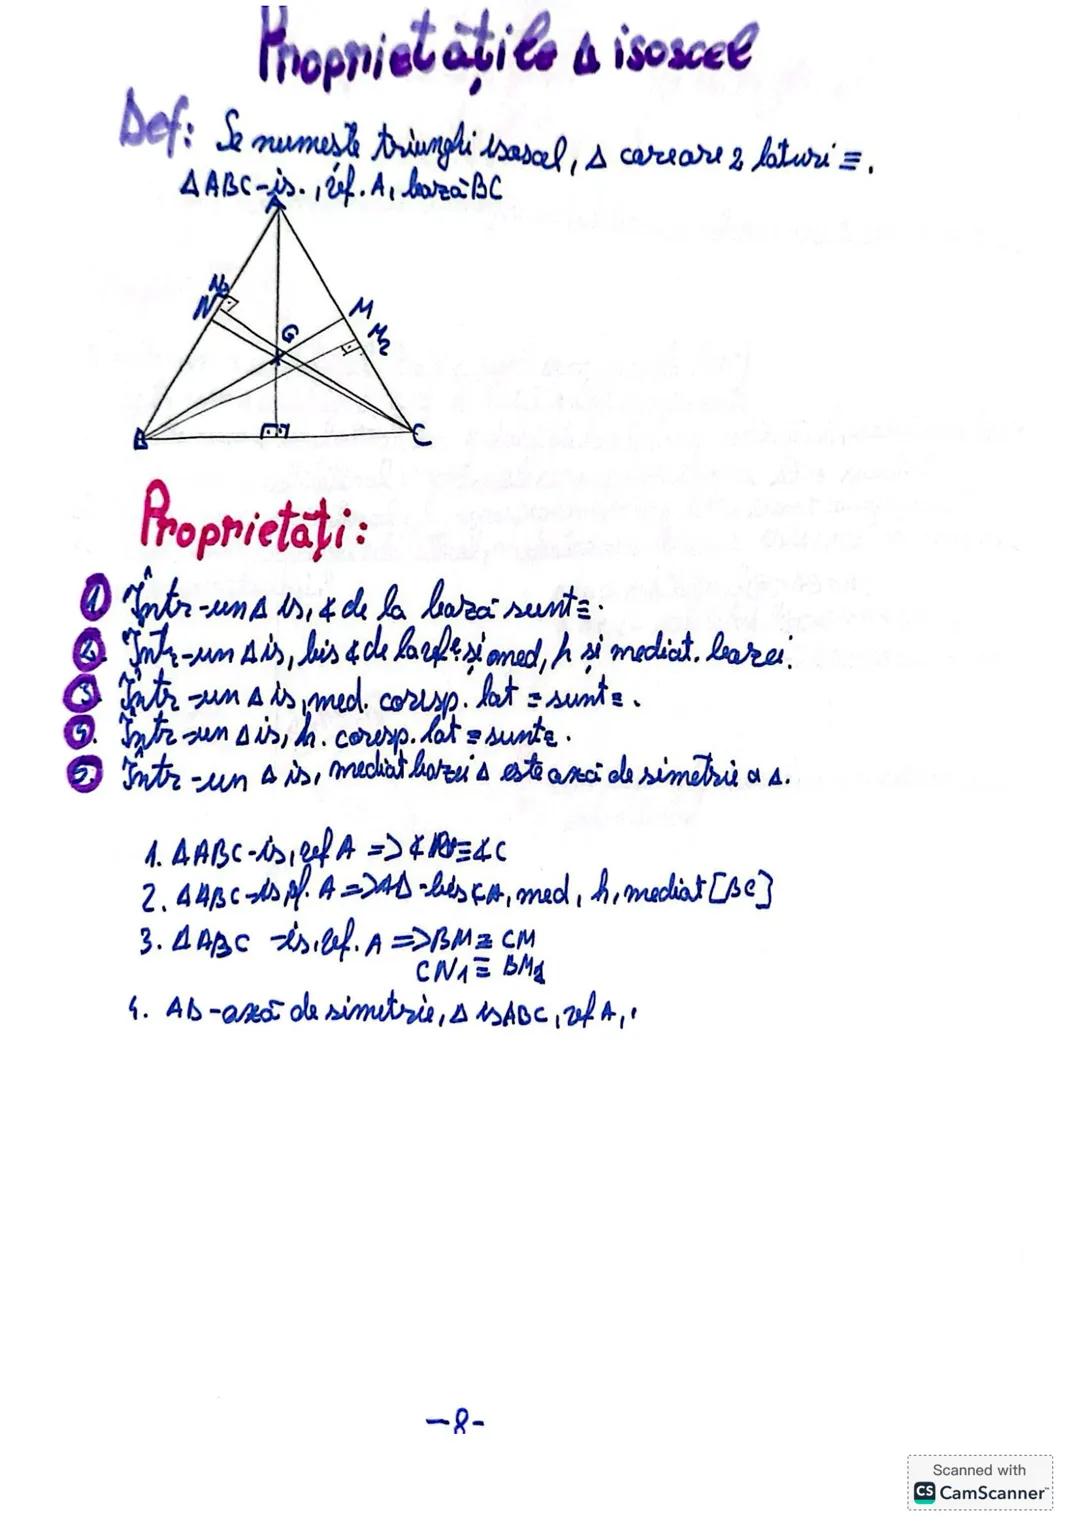 Proprietățile Δ isoscel
Def: Se numește triunghi isoscel, Δ care are 2 laturi ≡.
Δ ABC-is., vf. A, bază BC
A
N2
N
M
G
M2
B
C
Proprietăți:
1 Într-un Δ is, ∢ de la bază sunt ≡.
2. Într-un Δ is, bis ∢ de la vf e și med, h și mediat. bazei.
3. Într-un Δ is, med. coresp. lat ≡ sunt ≡.
4. Într-un Δ is, h. coresp. lat ≡ sunt ≡.
5. Într-un Δ is, mediat bazei Δ este axă de simetrie a Δ.
1. ΔABC-is, vf A => ∢B≡∢C
2. ΔABC-is vf. A => AD-bis ∢A, med, h, mediat [BC]
3. ΔABC -is, vf. A => BM ≡ CM
CN1 ≡ BM1
4. AD-axă de simetrie, Δ is ABC, vf A,
-8-
Scanned with
CS CamScanner